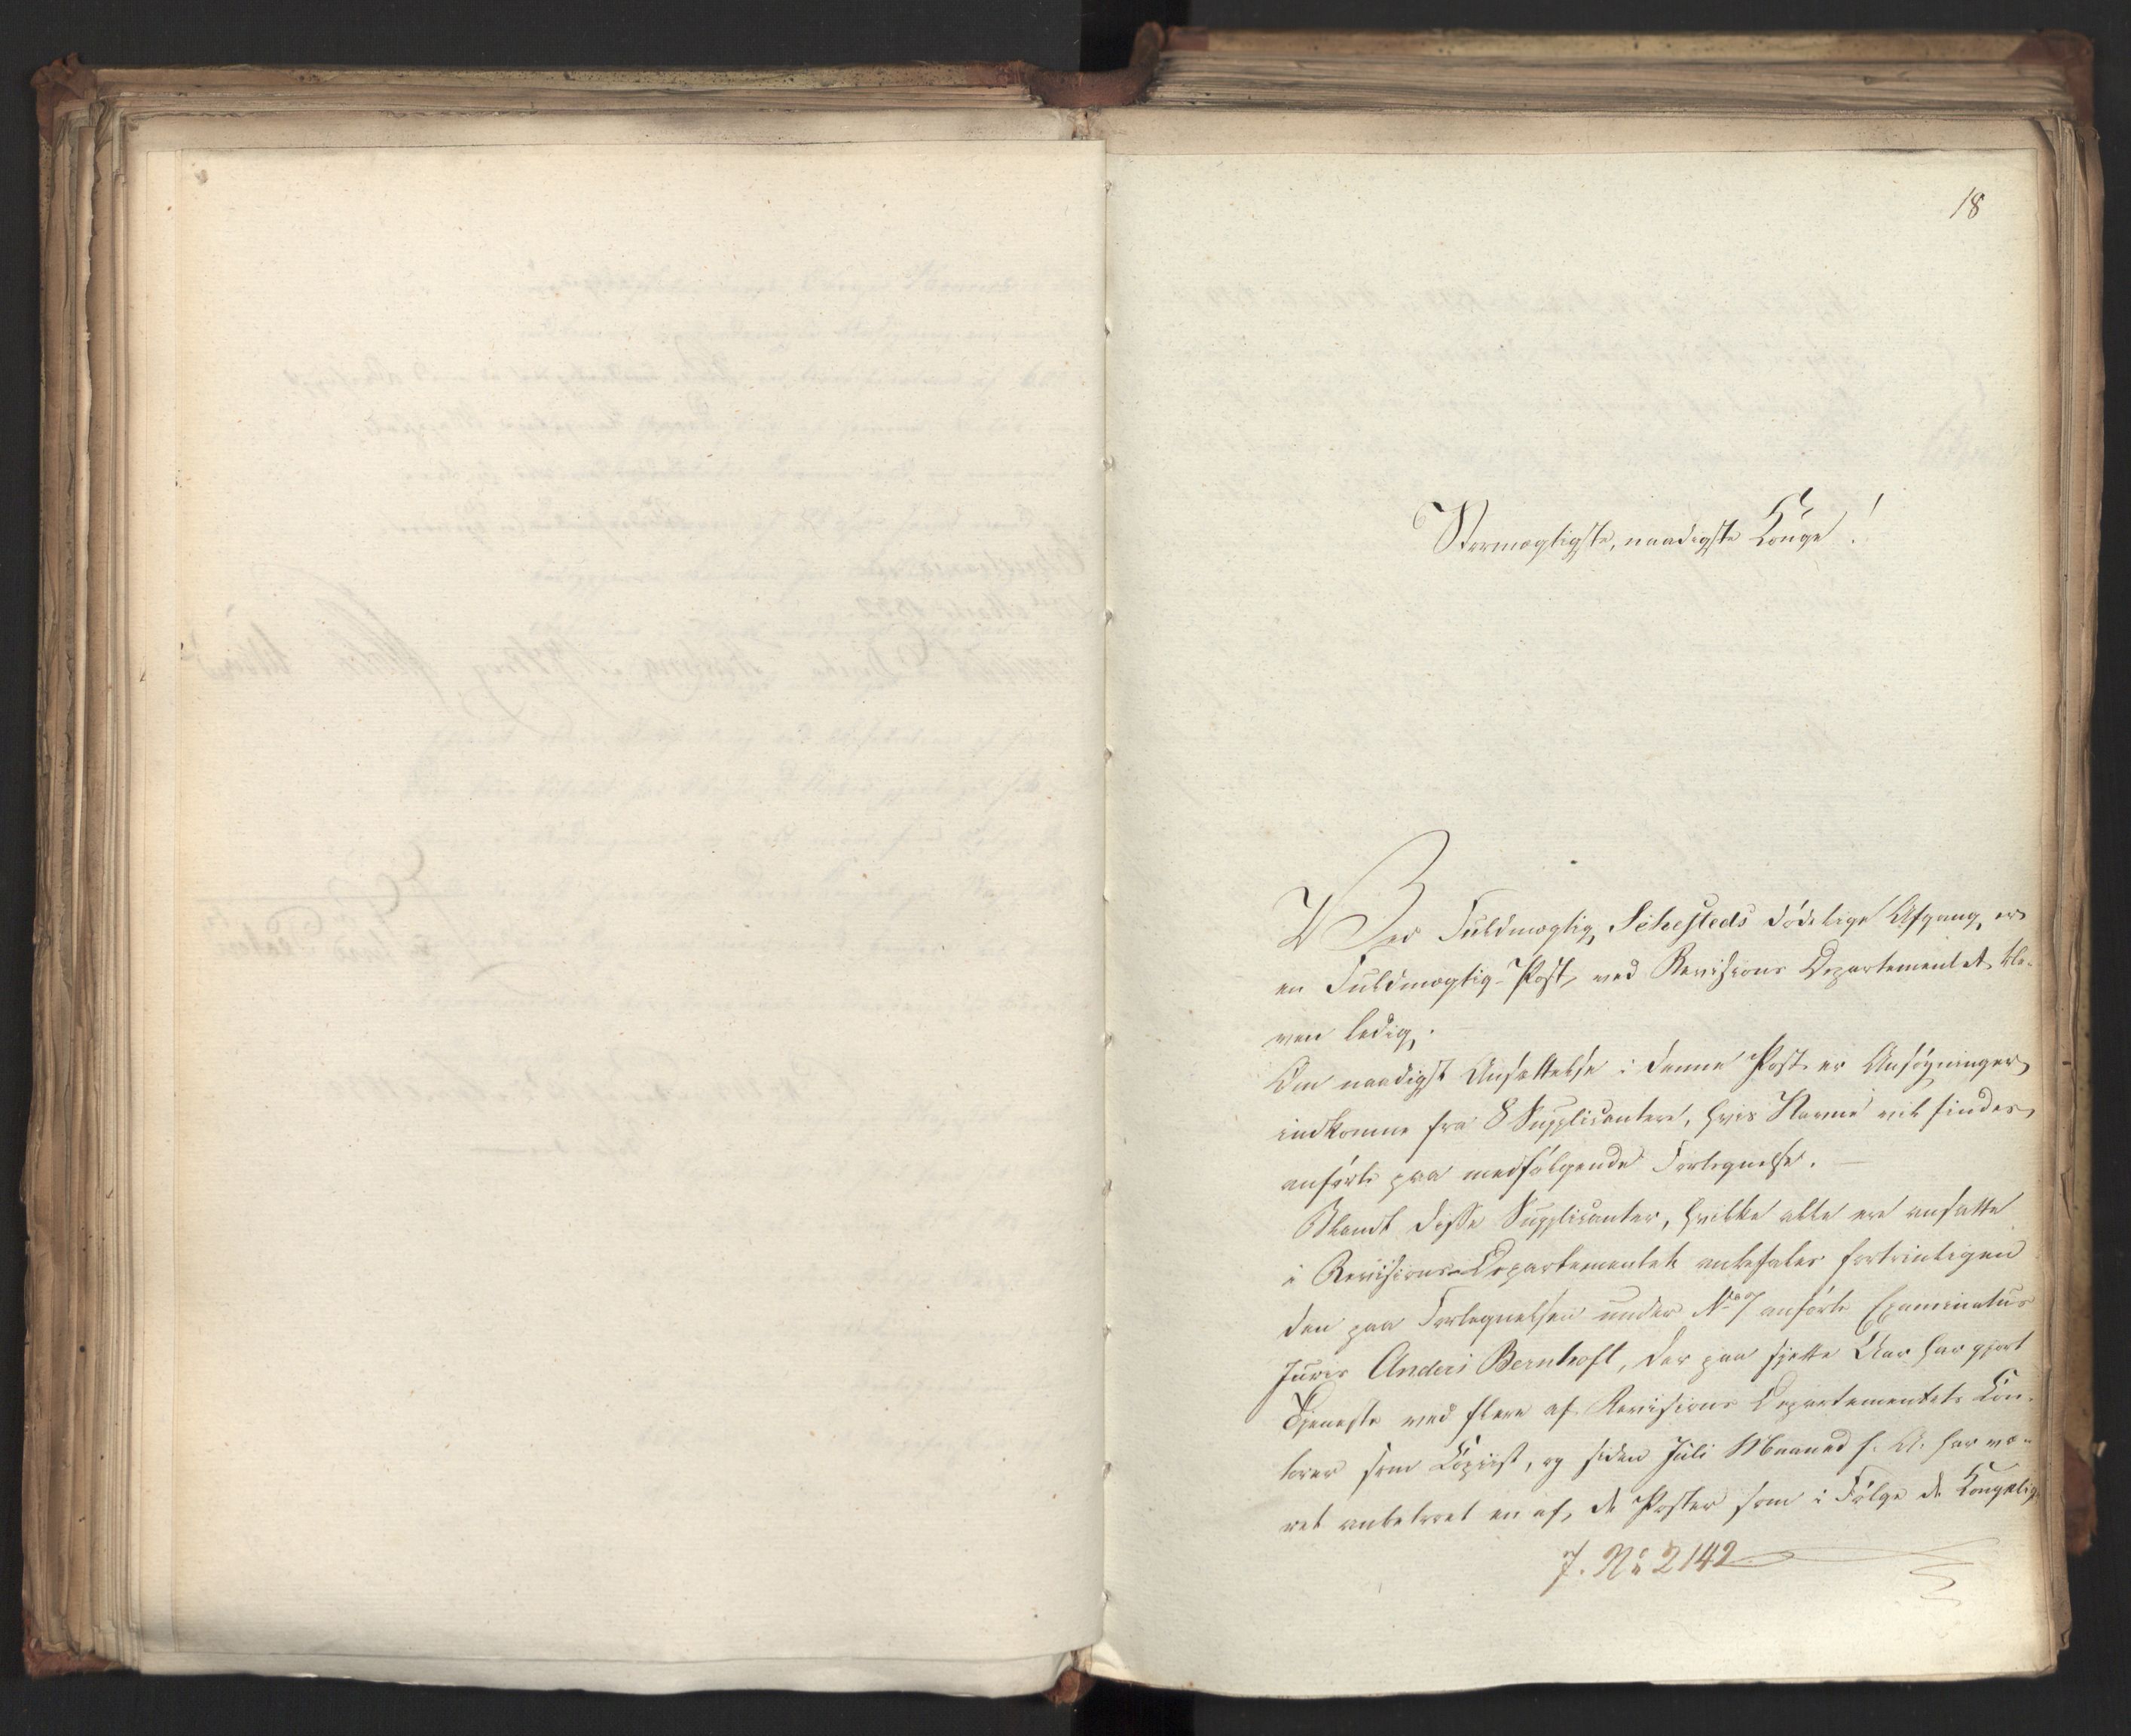 18
Stormægtigste, naadigste Konge!
Ved Fuldmægtig Sehesteds dödelige Afgang, er
en Fuldmægtig-Post, ved Revisions Departementet ble-
ven ledig.
Om naadigst Ansættelse i denne Post er Ansögninger
indkomne fra 8 Supplicantere, hvis Navne vil findes
anförte paa medfölgende Fortegnelse. —
Blandt disse Supplicanter, hvilke alle ere ansatte
i Revisions-Departementet anbefales fortrinligen
den paa Fortegnelsen under No 7 anförte Examinatus
Juris Anders Bernhoft, der paa sjette Aar har gjort
Tjeneste ved flere af Revisions Departementets Con-
torer som Copiist, og siden Juli Maaned f. A. har væ-
ret anbetroet en af, de Poster som i Fölge de Kongelige
J. No 2142